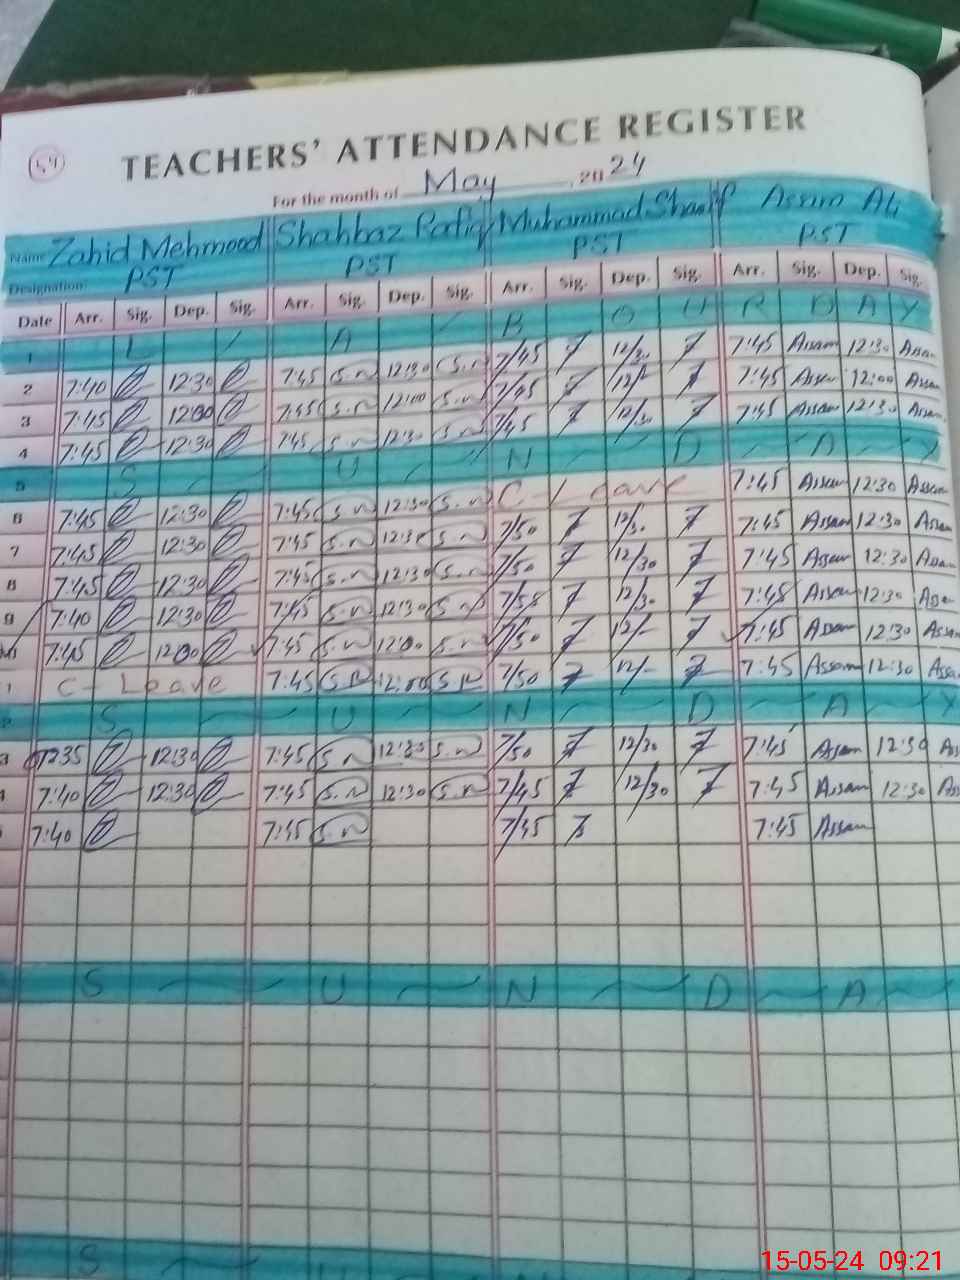 54
TEACHERS' ATTENDANCE REGISTER
For the month of May, 2024
Name Zahid Mehmood Shahbaz Rafiq Muhammad Sharif Assam Ali
Designation: PST PST PST PST
Date Arr. Sig. Dep. Sig. Arr. Sig. Dep. Sig. Arr. Sig. Dep. Sig. Arr. Sig. Dep. Sig.
1 L A B O U R D A Y
2 7:40 12:30 7:45 S.R 12:30 S.R 7/45 12/30 7:45 Assam 12:30 Assam
3 7:45 12:00 7:45 S.R 12:00 S.R 7/45 12/- 7:45 Assam 12:00 Assam
4 7:45 12:30 7:45 S.R 12:30 S.R 7/45 12/30 7:45 Assam 12:30 Assam
5 S U N D A Y
6 7:45 12:30 7:45 S.R 12:30 S.R C-Leave 7:45 Assam 12:30 Assam
7 7:45 12:30 7:45 S.R 12:30 S.R 7/50 12/30 7:45 Assam 12:30 Assam
8 7:45 12:30 7:45 S.R 12:30 S.R 7/50 12/30 7:45 Assam 12:30 Assam
9 7:40 12:30 7:45 S.R 12:30 S.R 7/55 12/30 7:45 Assam 12:30 Assam
10 7:45 12:00 7:45 S.R 12:00 S.R 7/50 12/- 7:45 Assam 12:30 Assam
1 C-Leave 7:45 S.R 12:00 S.R 7/50 12/- 7:45 Assam 12:30 Assa
2 S U N D A Y
3 7:35 12:30 7:45 S.R 12:30 S.R 7/50 12/30 7:45 Assam 12:30 As
4 7:40 12:30 7:45 S.R 12:30 S.R 7/45 12/30 7:45 Assam 12:30 Ass
7:40 7:45 S.R 7/45 7:45 Assam
S U N D A
S
15-05-24 09:21